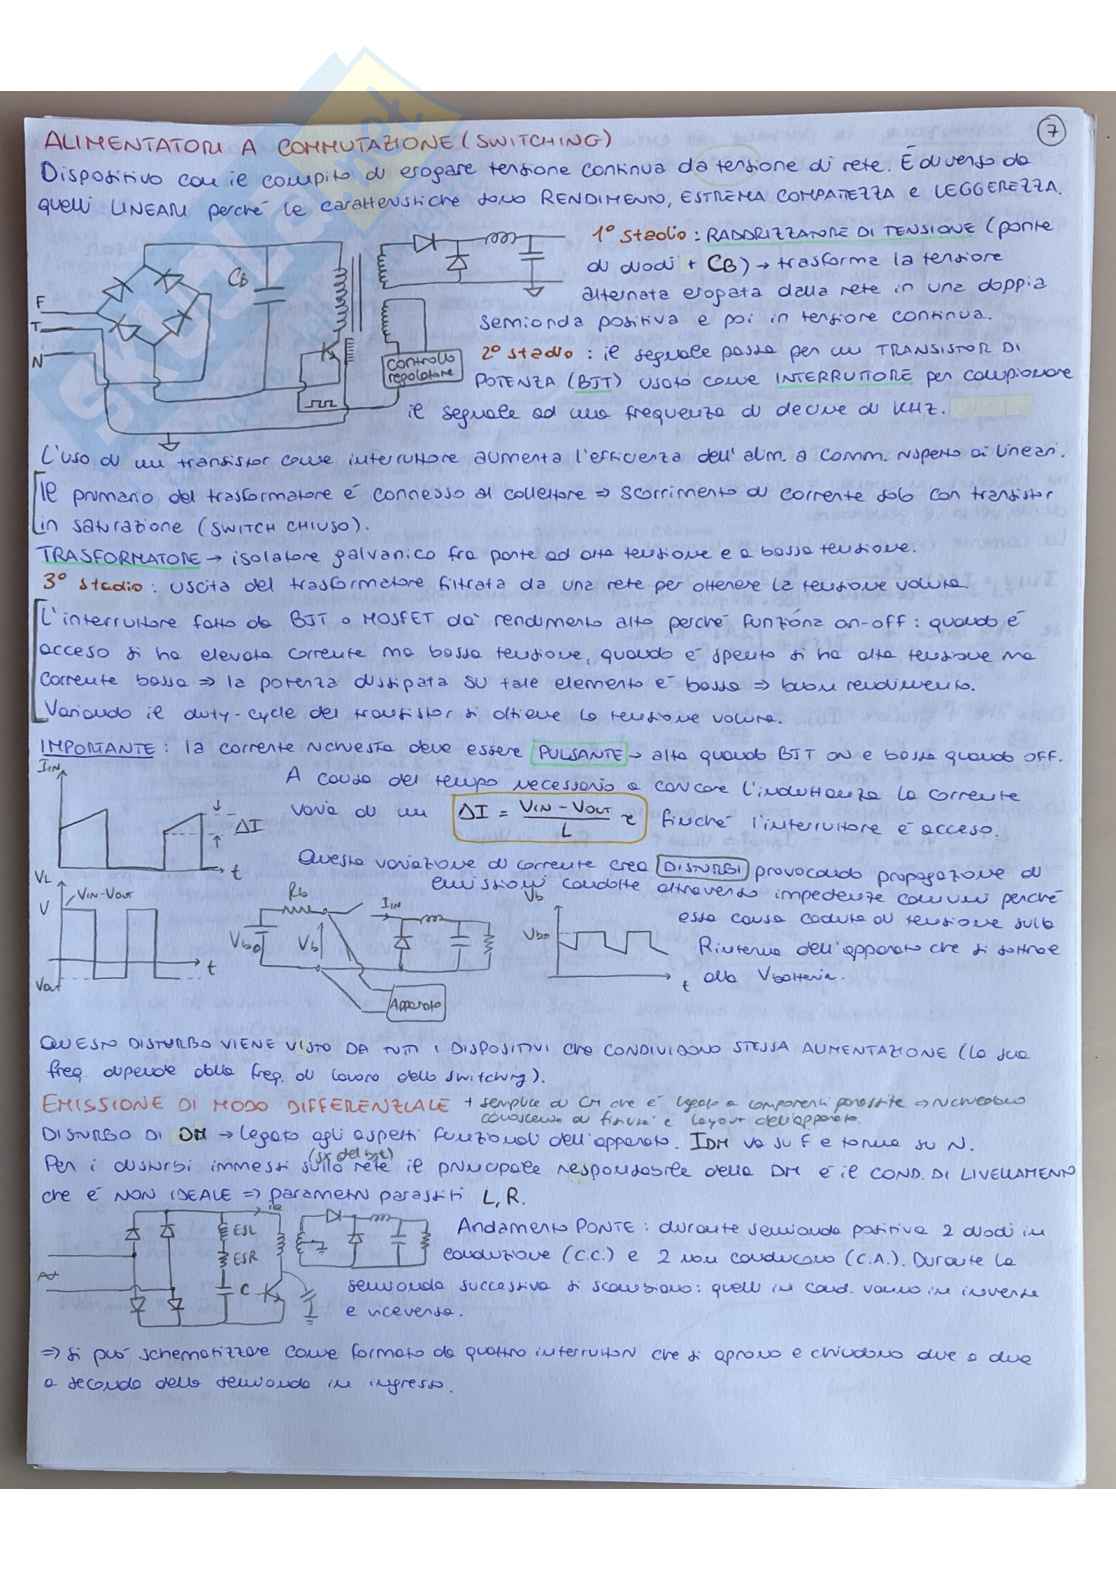 7
ALIMENTATORI A COMMUTAZIONE (SWITCHING)
Dispositivo con il compito di erogare tensione continua da tensione di rete. È diverso da
quelli LINEARI perché le caratteristiche sono RENDIMENTO, ESTREMA COMPATEZZA e LEGGEREZZA.
1° stadio: RADDRIZZATORE DI TENSIONE (ponte
di diodi + CB) → trasforma la tensione
alternata erogata dalla rete in una doppia
semionda positiva e poi in tensione continua.
CB
F
T
N
Controllo
regolatore
2° stadio: il segnale passa per un TRANSISTOR DI
POTENZA (BJT) usato come INTERRUTTORE per campionare
il segnale ad una frequenza di decine di KHZ.
L'uso di un transistor come interruttore aumenta l'efficienza dell'alim. a comm. rispetto ai lineari.
Il primario del trasformatore è connesso al collettore ⇒ scorrimento di corrente solo con transistor
in saturazione (SWITCH CHIUSO).
TRASFORMATORE → isolatore galvanico fra parte ad alta tensione e a bassa tensione.
3° stadio: uscita del trasformatore filtrata da una rete per ottenere la tensione voluta.
L'interruttore fatto da BJT o MOSFET dà rendimento alto perché funziona on-off: quando è
acceso si ha elevata corrente ma bassa tensione, quando è spento si ha alta tensione ma
corrente bassa ⇒ la potenza dissipata su tale elemento è bassa ⇒ buon rendimento.
Variando il duty-cycle del transistor si ottiene la tensione voluta.
IMPORTANTE: la corrente richiesta deve essere PULSANTE → alta quando BJT ON e bassa quando OFF.
IIN
ΔI
t
A causa del tempo necessario a caricare l'induttanza la corrente
varia di un ΔI = VIN - VOUT / L τ finché l'interruttore è acceso.
Questa variazione di corrente crea DISTURBI provocando propagazione di
emissioni condotte attraverso impedenze comuni perché
essa causa caduta di tensione sulla
Rinterna dell'apparato che si sottrae
alla Vbatteria.
VL
V
VIN-VOUT
t
Vout
Rb
IIN
Vbo
Vb
Apparato
Vb
Vbo
t
QUESTO DISTURBO VIENE VISTO DA TUTTI I DISPOSITIVI che CONDIVIDONO STESSA ALIMENTAZIONE (la sua
freq. dipende dalla freq. di lavoro dello switching).
EMISSIONE DI MODO DIFFERENZIALE + semplice di CM che è legato a componenti parassite → richiedono
conoscenza di fisica e layout dell'apparato.
DISTURBO DI DM → legato agli aspetti funzionali dell'apparato. IDM va su F e torna su N.
(sx del bjt)
Per i disturbi immessi sulla rete il principale responsabile della DM è il COND. DI LIVELLAMENTO
che è NON IDEALE ⇒ parametri parassiti L, R.
ESL
ESR
C
Andamento PONTE: durante semionda positiva 2 diodi in
conduzione (C.C.) e 2 non conducono (C.A.). Durante la
semionda successiva si scambiano: quelli in cond. vanno in inversa
e viceversa.
⇒ si può schematizzare come formato da quattro interruttori che si aprono e chiudono due a due
a seconda della semionda in ingresso.